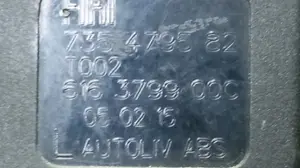 FIAT
735 4795 82
T002
616 3799 00C
05 02 15
L AUTOLIV ABS